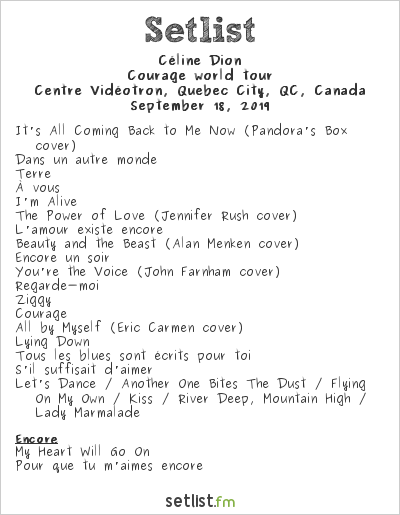 Setlist
Céline Dion
Courage world tour
Centre Vidéotron, Quebec City, QC, Canada
September 18, 2019
It's All Coming Back to Me Now (Pandora's Box
cover)
Dans un autre monde
Terre
À vous
I'm Alive
The Power of Love (Jennifer Rush cover)
L'amour existe encore
Beauty and the Beast (Alan Menken cover)
Encore un soir
You're the Voice (John Farnham cover)
Regarde-moi
Ziggy
Courage
All by Myself (Eric Carmen cover)
Lying Down
Tous les blues sont écrits pour toi
S'il suffisait d'aimer
Let's Dance / Another One Bites The Dust / Flying
On My Own / Kiss / River Deep, Mountain High /
Lady Marmalade
Encore
My Heart Will Go On
Pour que tu m'aimes encore
setlist.fm